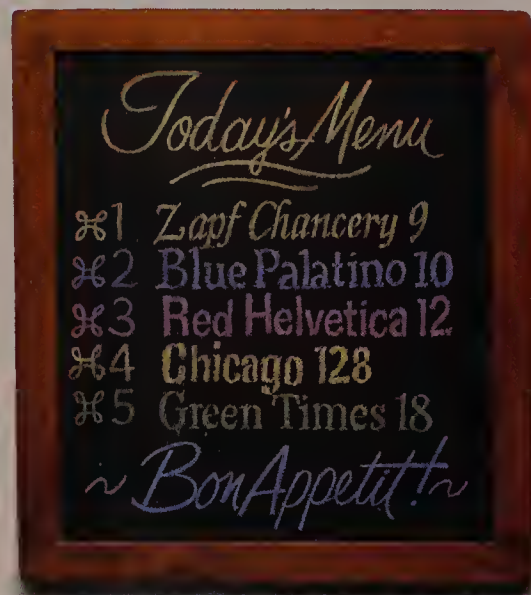 Today's Menu
⌘1 Zapf Chancery 9
⌘2 Blue Palatino 10
⌘3 Red Helvetica 12
⌘4 Chicago 128
⌘5 Green Times 18
~ Bon Appetit! ~